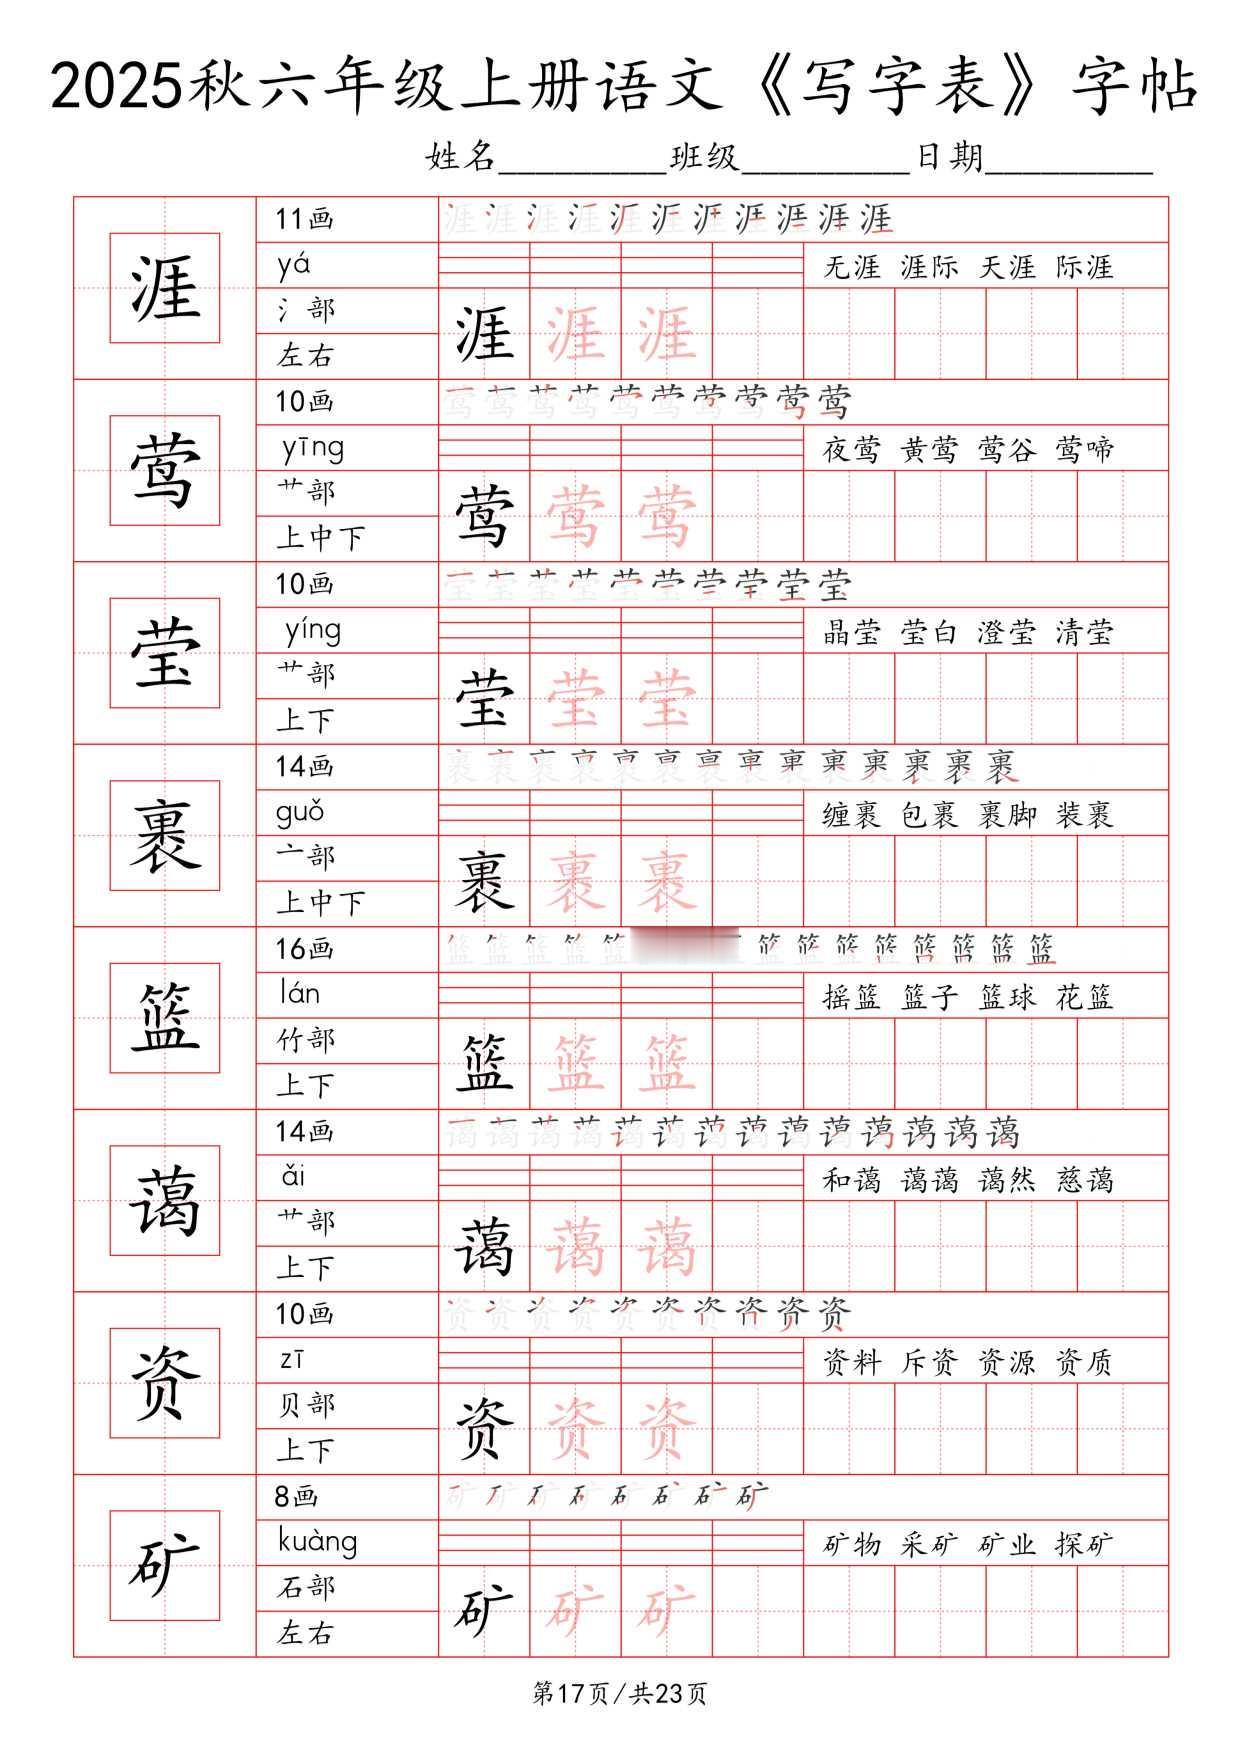 2025秋六年级上册语文《写字表》字帖
姓名_________班级_________日期_________
涯
11画
涯 涯 涯 涯 涯 涯 涯 涯 涯 涯 涯
yá
无涯 涯际 天涯 际涯
氵部
左右
涯 涯 涯
莺
10画
莺 莺 莺 莺 莺 莺 莺 莺 莺 莺
yīng
夜莺 黄莺 莺谷 莺啼
艹部
上中下
莺 莺 莺
莹
10画
莹 莹 莹 莹 莹 莹 莹 莹 莹 莹
yíng
晶莹 莹白 澄莹 清莹
艹部
上下
莹 莹 莹
裹
14画
裹 裹 裹 裹 裹 裹 裹 裹 裹 裹 裹 裹 裹 裹
guǒ
缠裹 包裹 裹脚 装裹
亠部
上中下
裹 裹 裹
篮
16画
篮 篮 篮 篮 篮 篮 篮 篮 篮 篮 篮 篮 篮
lán
摇篮 篮子 篮球 花篮
竹部
上下
篮 篮 篮
蔼
14画
蔼 蔼 蔼 蔼 蔼 蔼 蔼 蔼 蔼 蔼 蔼 蔼 蔼 蔼
ǎi
和蔼 蔼蔼 蔼然 慈蔼
艹部
上下
蔼 蔼 蔼
资
10画
资 资 资 资 资 资 资 资 资 资
zī
资料 斥资 资源 资质
贝部
上下
资 资 资
矿
8画
矿 矿 矿 矿 矿 矿 矿 矿
kuàng
矿物 采矿 矿业 探矿
石部
左右
矿 矿 矿
第17页/共23页